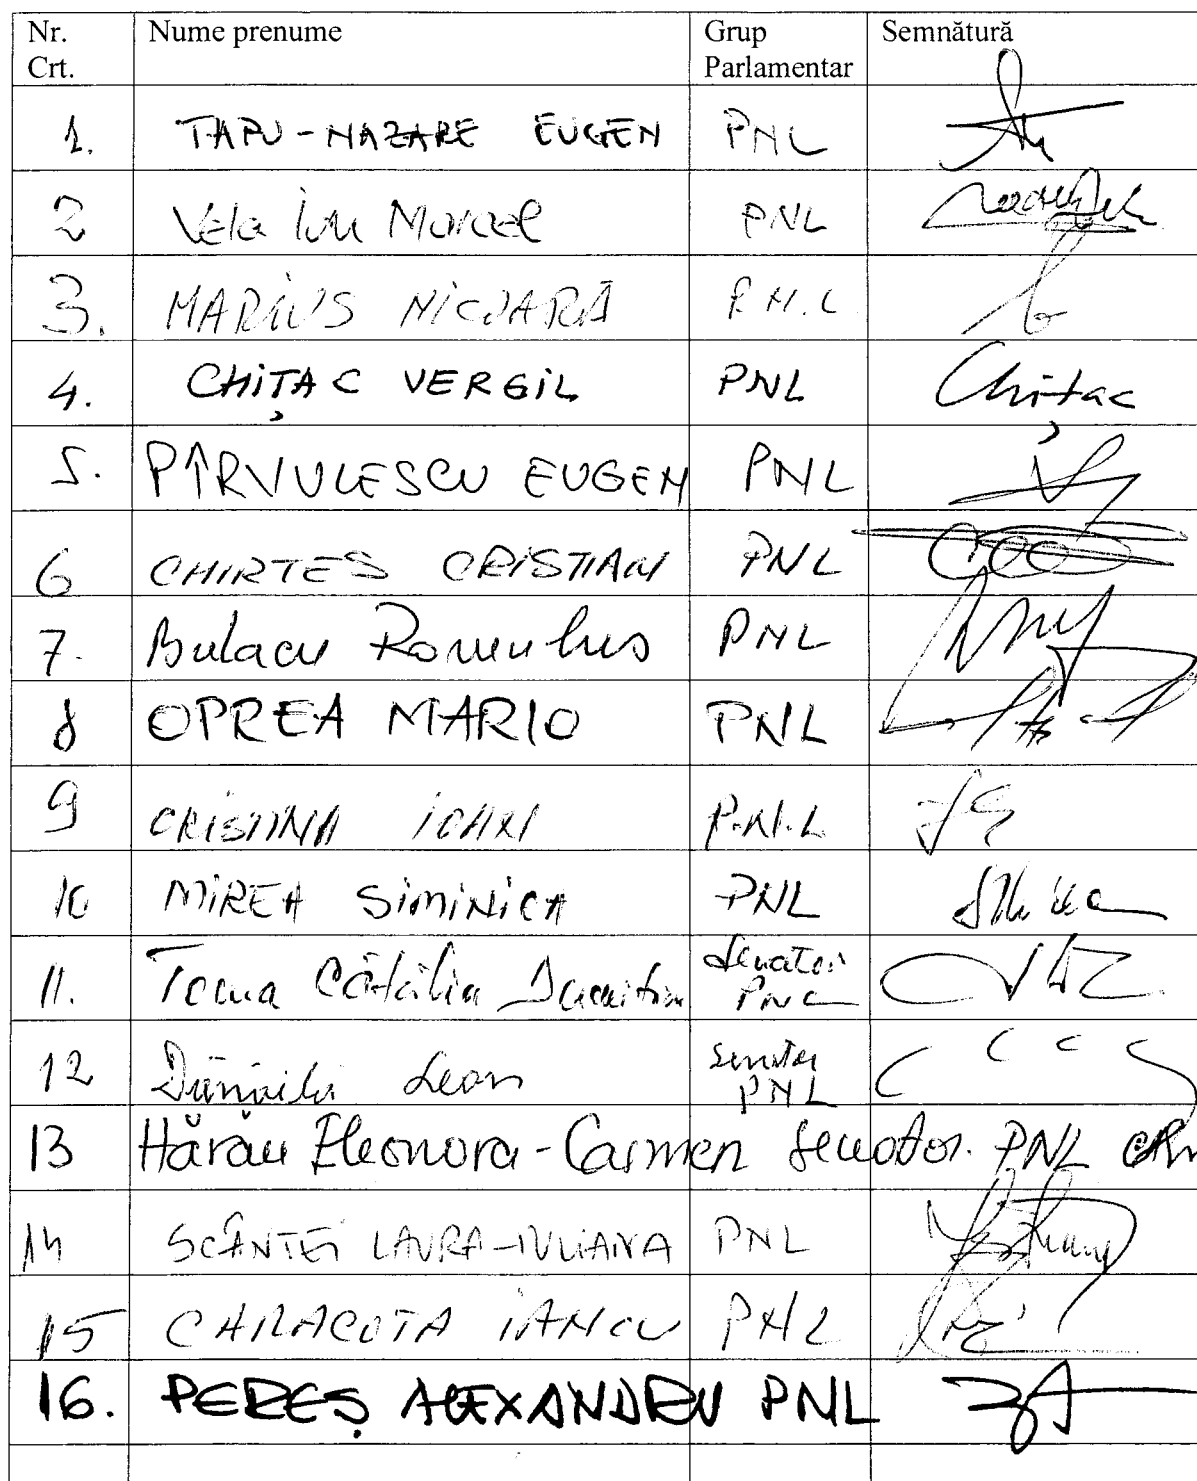 Nr. Crt. Nume prenume Grup Parlamentar Semnătură
1. TAPU-NAZARE EUGEN PNL
2 Vela Ion Marcel PNL
3. MARIUS NICOARĂ P.N.L
4. CHIȚAC VERGIL PNL Chițac
5. PÎRVULESCU EUGEN PNL
6 CHIRTEȘ CRISTIAN PNL
7. Bulacu Romulus PNL
8 OPREA MARIO PNL
9 CRISTINA IOAN P.N.L
10 MIREA SIMINICA PNL
11. Toma Cătălin Dumitru Senator PNL
12 Dănăilă Leon Senator PNL
13 Hărău Eleonora-Carmen Senator. PNL
14 SCÂNTEI LAURA-IULIANA PNL
15 CARACOTA IANCU PNL
16. PEREȘ ALEXANDRU PNL